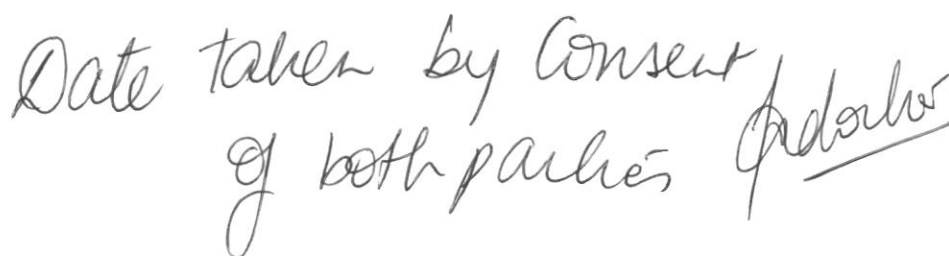 Date taken by Consent
of both parties